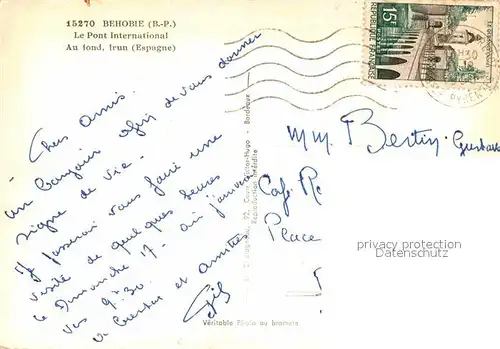 15270 BEHOBIE (B.-P.)
Le Pont International
Au fond, Irun (Espagne)
Chers Amis.
un bonjour afin de vous donner
signe de vie.
Je passerai vous faire une
visite de quelques heures
le Dimanche 17. où j'arriverai
vers 9h30.
et Amitiés
Gil
REPUBLIQUE FRANÇAISE
15F
MM. Bertin Gustave
Café
Place
privacy protection
AnsichtskartenVersand.de
Cours Victor-Hugo - Bordeaux
Reproduction interdite
Véritable Photo au bromure